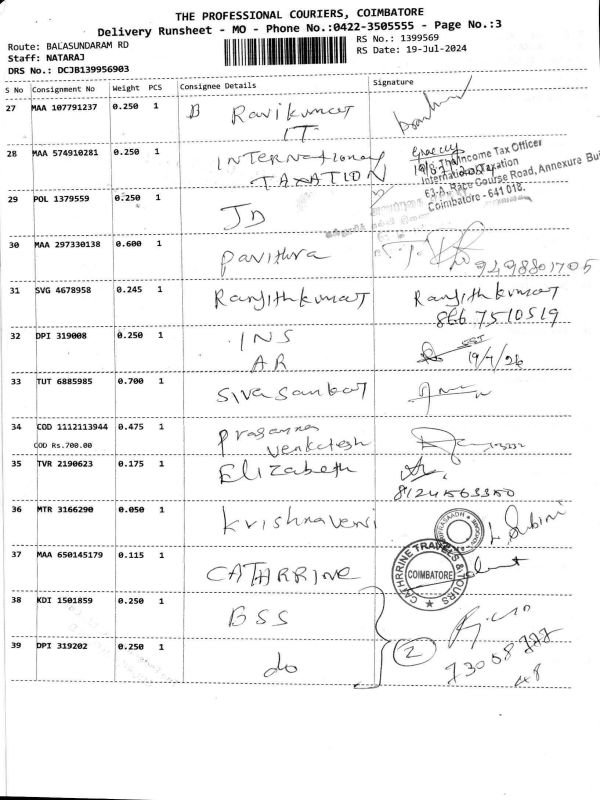 THE PROFESSIONAL COURIERS, COIMBATORE
Delivery Runsheet - MO - Phone No.:0422-3505555 - Page No.:3
Route: BALASUNDARAM RD
Staff: NATARAJ
DRS No.: DCJB139956903
RS No.: 1399569
RS Date: 19-Jul-2024
S No Consignment No Weight PCS Consignee Details Signature
27 MAA 107791237 0.250 1 B Ravikumar
IT
28 MAA 574910281 0.250 1 INTERNational
TAXATION
The Income Tax Officer
International Taxation
63-A, Race Course Road, Annexure Bui
Coimbatore - 641 018.
29 POL 1379559 0.250 1 JD
30 MAA 297330138 0.600 1 Pavithra
9498801705
31 SVG 4678958 0.245 1 Ranjithkumar Ranjithkumar
866 7510519
32 DPI 319008 0.250 1 INS
AR
33 TUT 6885985 0.700 1 Sivasankar
34 COD 1112113944 0.475 1 Prasanna
COD Rs.700.00 Venkatesh
35 TVR 2190623 0.175 1 Elizabeth
8124563350
36 MTR 3166290 0.050 1 Krishnaveni
37 MAA 650145179 0.115 1 CATHRRINE
CATHRRINE TRAVELS & TOURS
COIMBATORE
38 KDI 1501859 0.250 1 BSS
2
39 DPI 319202 0.250 1 do